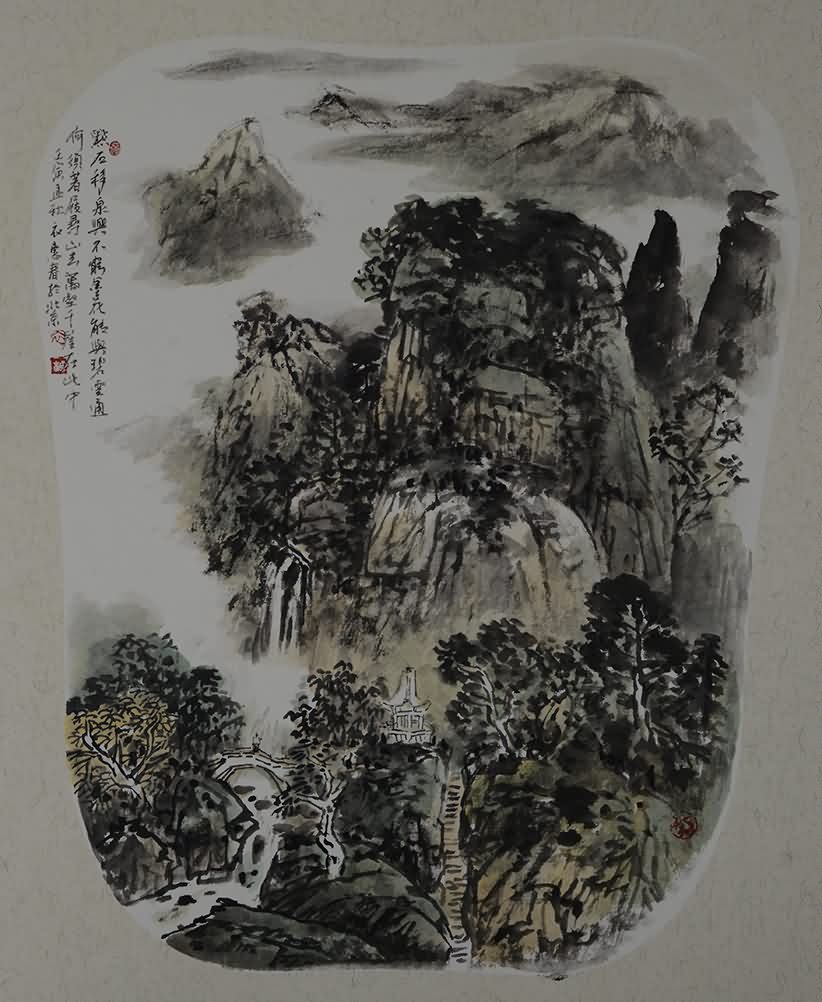 點石移泉興不窮墨花能與碧雲通
何須著屐尋山去萬壑千崖在此中
壬寅孟秋 春於北京